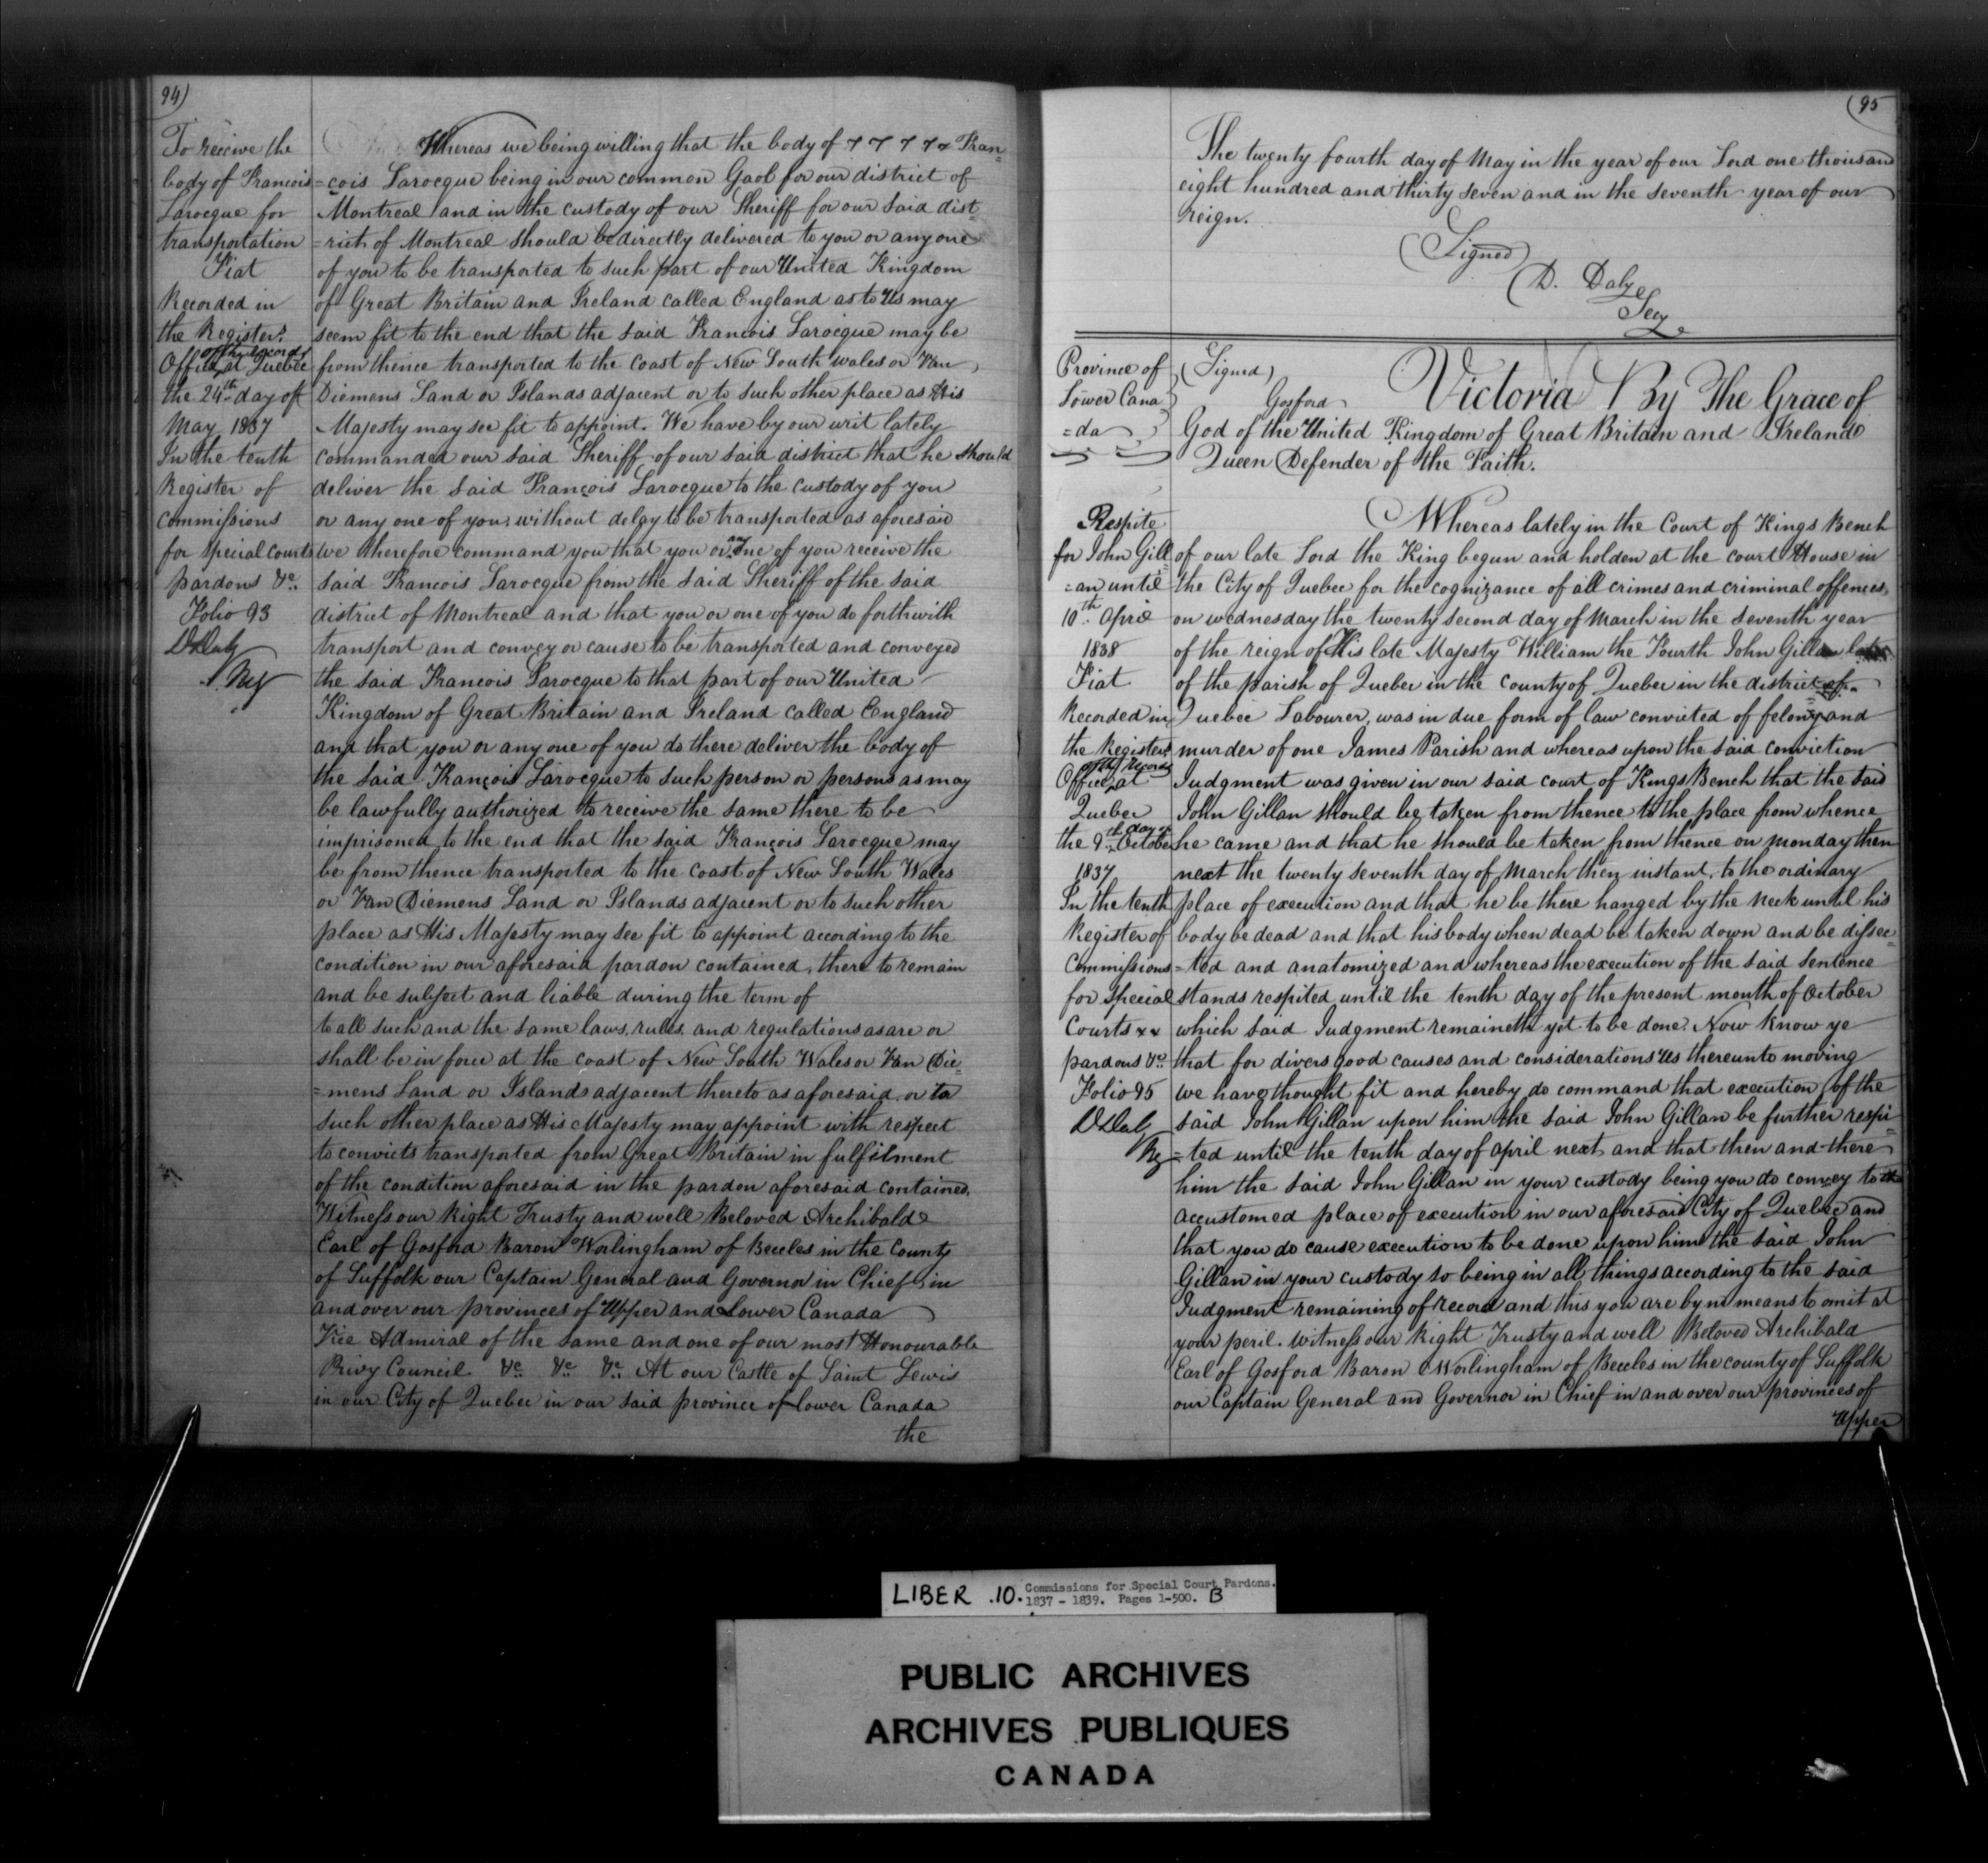 94)
To receive the
body of Francois
Larocque for
transportation
Fiat
Recorded in
the Registers
of the records
Office at Quebec
the 24th day of
May 1837
In the tenth
Register of
Commissions
for special Courts
pardons &c.
Folio 93
D Daly
Reg
Whereas we being willing that the body of Fran=
=cois Larocque being in our common Gaol for our district of
Montreal and in the custody of our Sheriff for our said dist=
=rict of Montreal should be directly delivered to you or any one
of you to be transported to such part of our United Kingdom
of Great Britain and Ireland called England as to Us may
seem fit to the end that the said Francois Larocque may be
from thence transported to the coast of New South wales or Van
Diemens Land or Islands adjacent or to such other place as His
Majesty may see fit to appoint. We have by our writ lately
commanded our said Sheriff of our said district that he should
deliver the said François Larocque to the custody of you
or any one of you, without delay to be transported as aforesaid
we therefore command you that you or any one of you receive the
said Francois Larocque from the said Sheriff of the said
district of Montreal and that you or one of you do forthwith
transport and convey or cause to be transported and conveyed
the said Francois Larocque to that part of our United
Kingdom of Great Britain and Ireland called England
and that you or any one of you do there deliver the body of
the said François Larocque to such person or persons as may
be lawfully authorized to receive the same there to be
imprisoned to the end that the said François Larocque may
be from thence transported to the coast of New South Wales
or Van Diemens Land or Islands adjacent or to such other
place as His Majesty may see fit to appoint according to the
condition in our aforesaid pardon contained, there to remain
and be subject and liable during the term of
to all such and the same laws, rules, and regulations as are or
shall be in force at the coast of New South Wales or Van Die=
=mens Land or Islands adjacent thereto as aforesaid, or to
such other place as His Majesty may appoint with respect
to convicts transported from Great Britain in fulfilment
of the condition aforesaid in the pardon aforesaid contained.
Witness our Right Trusty and well Beloved Archibald
Earl of Gosford Baron Worlingham of Beccles in the County
of Suffolk our Captain General and Governor in Chief in
and over our provinces of Upper and Lower Canada
Vice Admiral of the same and one of our most Honourable
Privy Council &c &c &c. At our Castle of Saint Lewis
in our City of Quebec in our said province of Lower Canada
the
(95
The twenty fourth day of May in the year of our Lord one thousand
eight hundred and thirty seven and in the seventh year of our
reign.
(Signed)
D. Daly
Secy
Province of
Lower Cana
=da
(Signed)
Gosford
Victoria By The Grace of
God of the United Kingdom of Great Britain and Ireland
Queen Defender of the Faith.
Respite
for John Gill
=an until
10th. April
1838
Fiat
Recorded in
the Registers
of the Records
Office at
Quebec
the 9th day of October
1837
In the tenth
Register of
Commissions
for special
Courts xx
pardons &c.
Folio 95
D Daly
Reg
Whereas lately in the Court of Kings Bench
of our late Lord the King begun and holden at the court House in
the City of Quebec for the cognizance of all crimes and criminal offences,
on wednesday the twenty second day of March in the seventh year
of the reign of His late Majesty William the Fourth John Gillan late
of the parish of Quebec in the county of Quebec in the district of
Quebec Labourer, was in due form of law convicted of felony and
murder of one James Parish and whereas upon the said conviction
Judgment was given in our said court of Kings Bench that the said
John Gillan should be taken from thence to the place from whence
he came and that he should be taken from thence on monday then
next the twenty seventh day of March then instant, to the ordinary
place of execution and that he be there hanged by the neck until his
body be dead and that his body when dead be taken down and be dissec=
=ted and anatomized and whereas the execution of the said sentence
stands respited until the tenth day of the present month of October
which said Judgment remaineth yet to be done. Now know ye
that for divers good causes and considerations Us thereunto moving
we have thought fit and hereby do command that execution of the
said John Gillan upon him the said John Gillan be further respi=
=ted until the tenth day of april next and that then and there
him the said John Gillan in your custody being you do convey to the
accustomed place of execution in our aforesaid City of Quebec and
that you do cause execution to be done upon him the said John
Gillan in your custody so being in all things according to the said
Judgment remaining of record and this you are by no means to omit at
your peril. Witness our Right Trusty and well Beloved Archibald
Earl of Gosford Baron Worlingham of Beccles in the county of Suffolk
our Captain General and Governor in Chief in and over our provinces of
Upper
LIBER .10. Commissions for Special Court Pardons.
1837 - 1839. Pages 1-500. B
PUBLIC ARCHIVES
ARCHIVES PUBLIQUES
CANADA